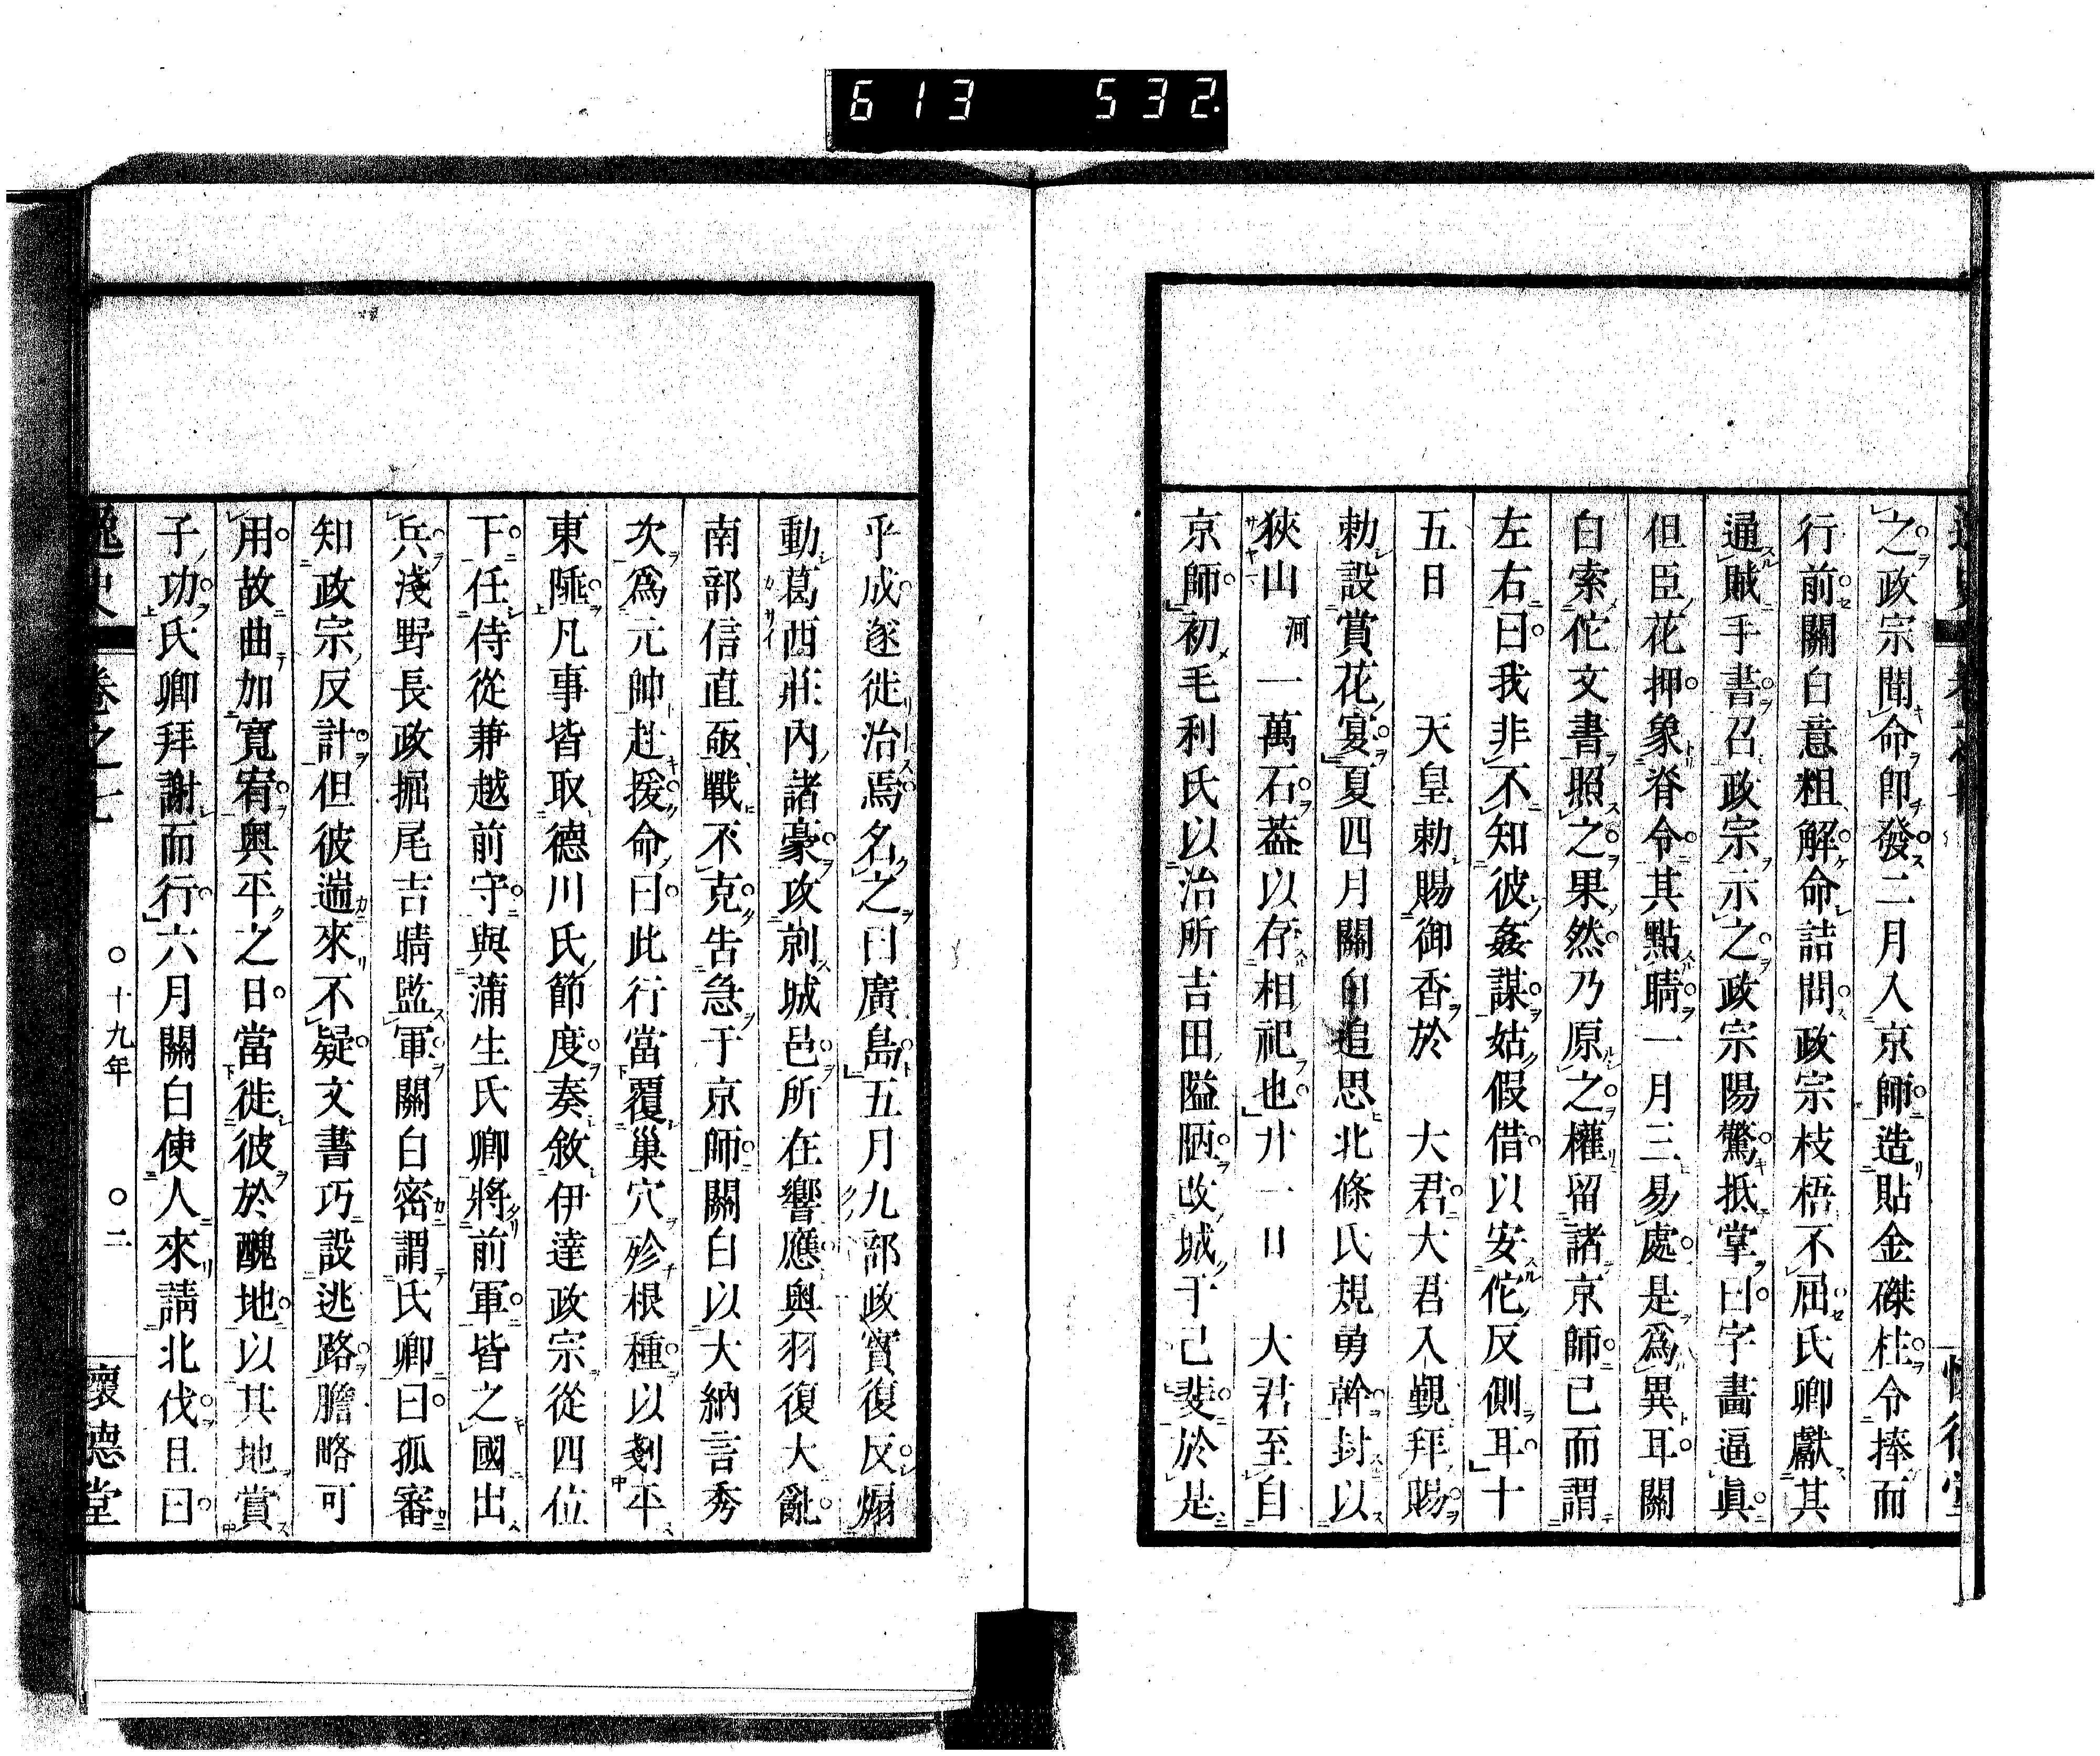 613 532.
之政宗聞命即發二月入京師造貼金磔柱令捧而
行前關白意粗解命詰問政宗枝梧不屈氏卿獻其
通賊手書召政宗示之政宗陽驚抵掌曰字畫逼眞
但臣花押象脊令其點睛一月三易處是爲異耳關
白索佗文書照之果然乃原之權留諸京師已而謂
左右曰我非不知彼姦謀姑假借以安佗反側耳十
五日 天皇勅賜御香於 大君大君入覲拜賜
勅設賞花宴夏四月關白追思北條氏規勇幹封以
狹山河一萬石葢以存相祀也廾一日 大君至自
京師初毛利氏以治所吉田隘陋改城于己斐於是
乎成遂徙治焉名之曰廣島五月九部政實復反煽
動葛西莊內諸豪攻剠城邑所在響應奥羽復大亂
南部信直亟戰不克告急于京師關白以大納言秀
次爲元帥赴援命曰此行當覆巢穴殄根種以剗平
東陲凡事皆取德川氏節度奏敘伊達政宗從四位
下任侍從兼越前守與蒲生氏卿將前軍皆之國出
兵淺野長政掘尾吉晴監軍關白密謂氏卿曰孤審
知政宗反計但彼遄來不疑文書巧設逃路膽略可
用故曲加寬宥奥平之日當徙彼於醜地以其地賞
子功氏卿拜謝而行六月關白使人來請北伐且曰
逸史 卷之七 〇十九年 〇二 懷德堂